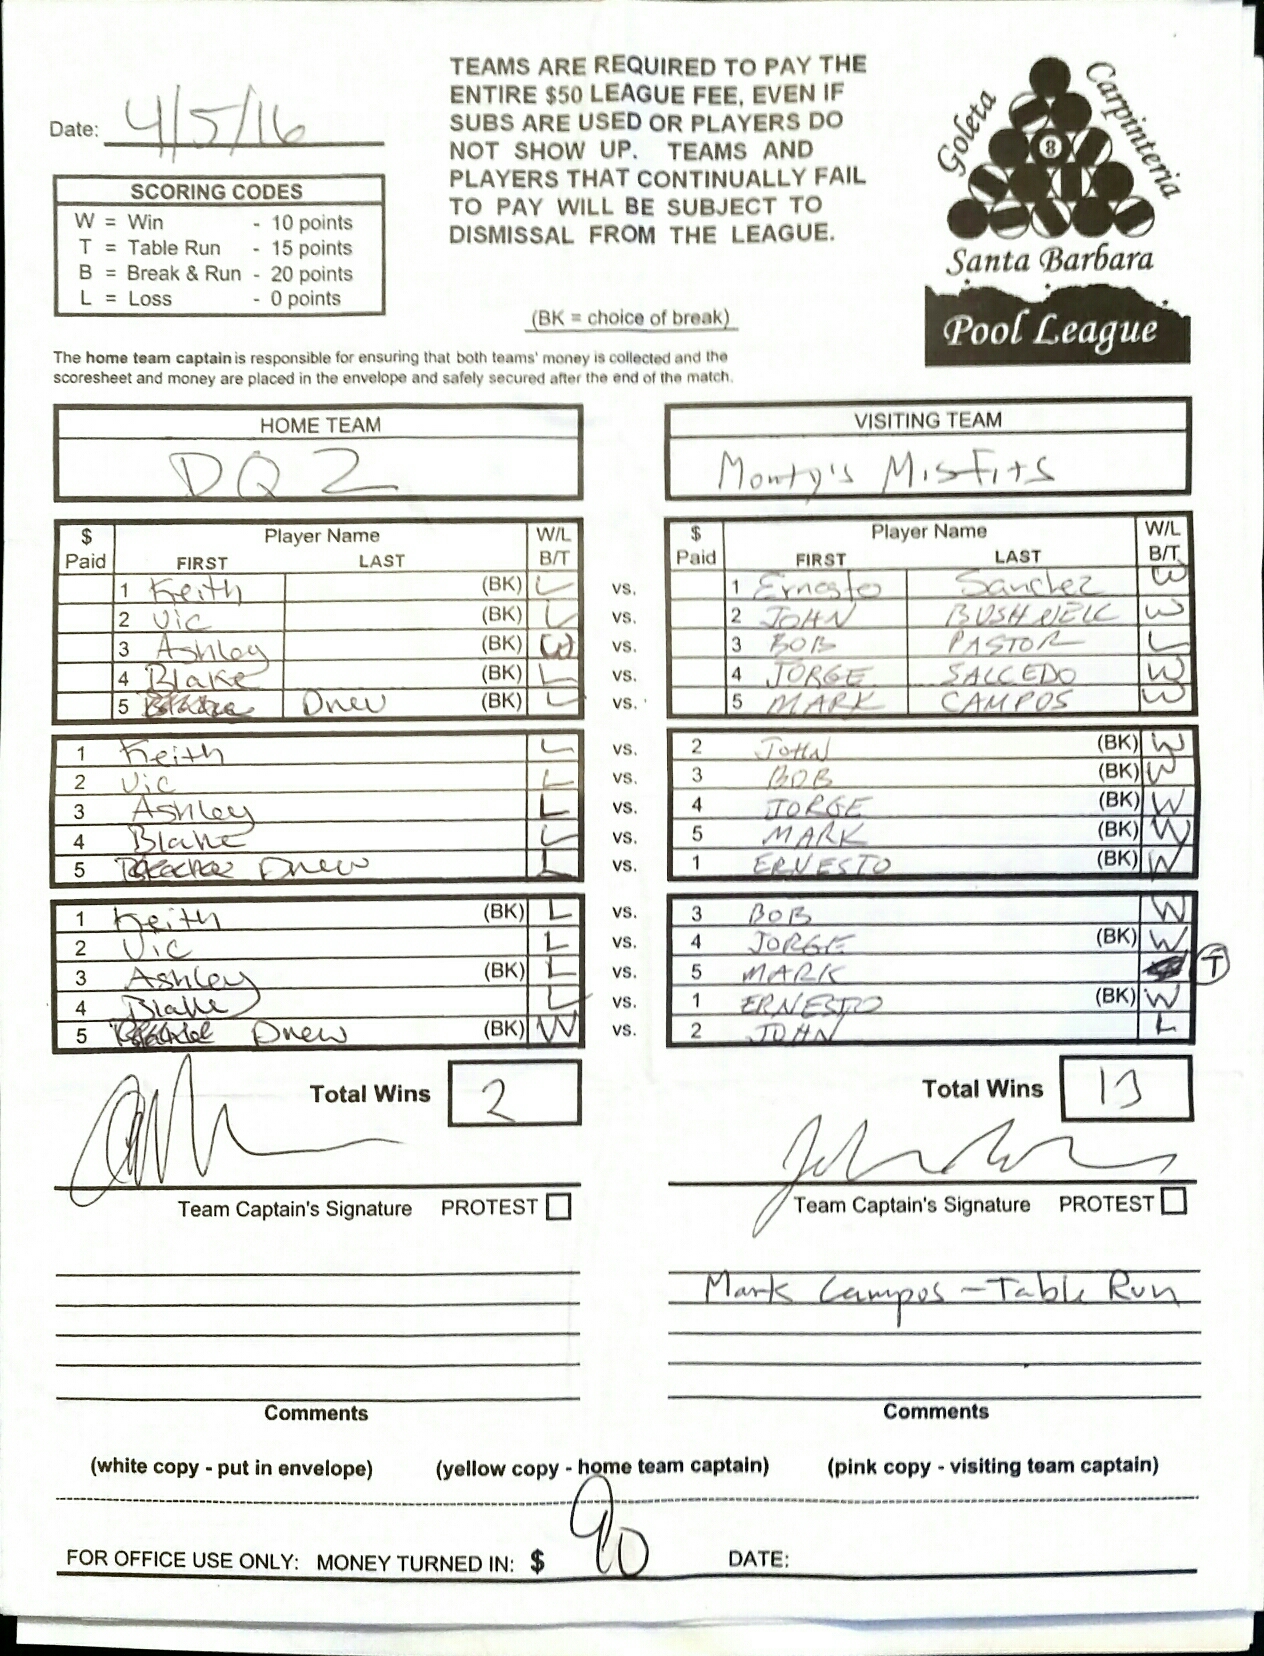 Date: 4/5/16
TEAMS ARE REQUIRED TO PAY THE
ENTIRE $50 LEAGUE FEE, EVEN IF
SUBS ARE USED OR PLAYERS DO
NOT SHOW UP. TEAMS AND
PLAYERS THAT CONTINUALLY FAIL
TO PAY WILL BE SUBJECT TO
DISMISSAL FROM THE LEAGUE.
Goleta
8
Carpinteria
Santa Barbara
Pool League
SCORING CODES
W = Win - 10 points
T = Table Run - 15 points
B = Break & Run - 20 points
L = Loss - 0 points
(BK = choice of break)
The home team captain is responsible for ensuring that both teams' money is collected and the
scoresheet and money are placed in the envelope and safely secured after the end of the match.
HOME TEAM
DQ 2
VISITING TEAM
Monty's Misfits
$ Paid Player Name FIRST LAST W/L B/T
$ Paid Player Name FIRST LAST W/L B/T
1 Keith (BK) L vs. 1 Ernesto Sanchez W
2 Vic (BK) L vs. 2 JOHN BUSHNELL W
3 Ashley (BK) W vs. 3 BOB PASTOR L
4 Blake (BK) L vs. 4 JORGE SALCEDO W
5 Drew (BK) L vs. 5 MARK CAMPOS W
1 Keith L vs. 2 JOHN (BK) W
2 Vic L vs. 3 BOB (BK) W
3 Ashley L vs. 4 JORGE (BK) W
4 Blake L vs. 5 MARK (BK) W
5 Drew L vs. 1 ERNESTO (BK) W
1 Keith (BK) L vs. 3 BOB W
2 Vic L vs. 4 JORGE (BK) W
3 Ashley (BK) L vs. 5 MARK T
4 Blake L vs. 1 ERNESTO (BK) W
5 Drew (BK) W vs. 2 JOHN L
Total Wins 2
Total Wins 13
Team Captain's Signature PROTEST
Team Captain's Signature PROTEST
Mark Campos - Table Run
Comments
Comments
(white copy - put in envelope) (yellow copy - home team captain) (pink copy - visiting team captain)
FOR OFFICE USE ONLY: MONEY TURNED IN: $ 90 DATE: